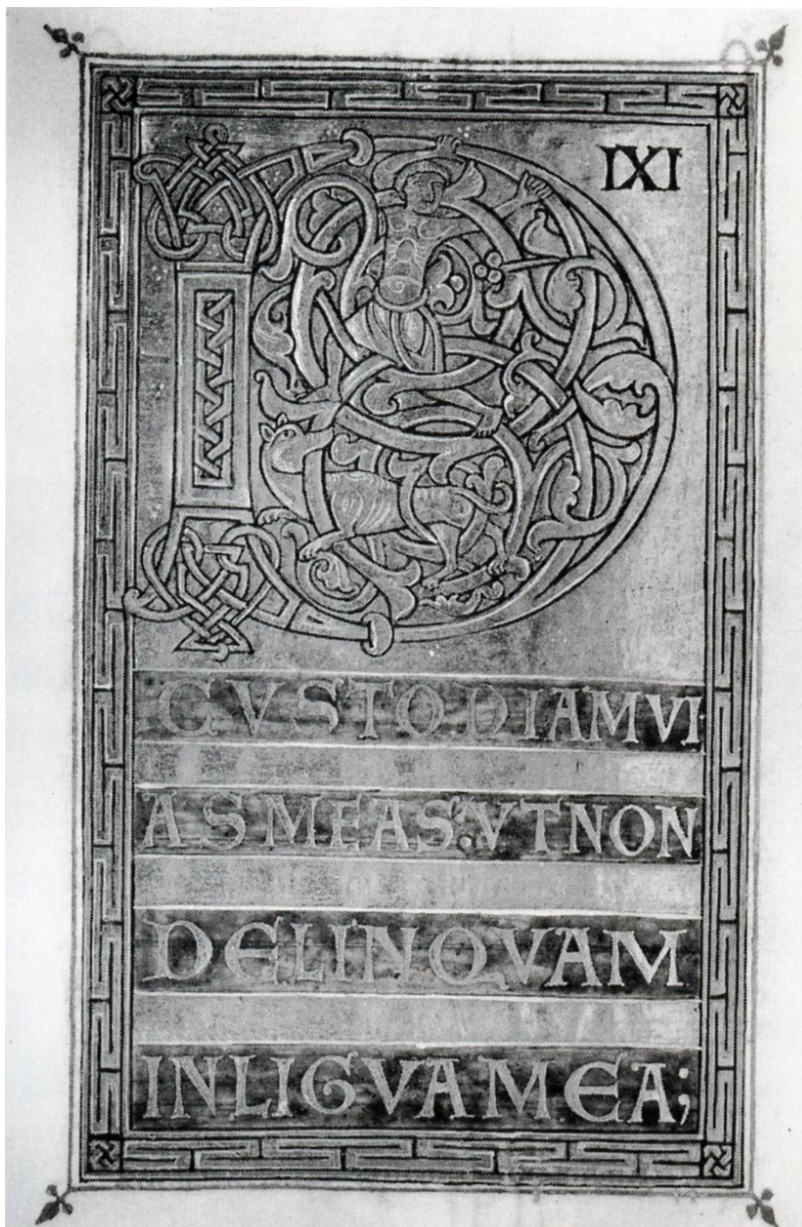 DIXI
CVSTODIAMVI
AS MEAS. VT NON
DELINQVAM
IN LIGVA MEA;